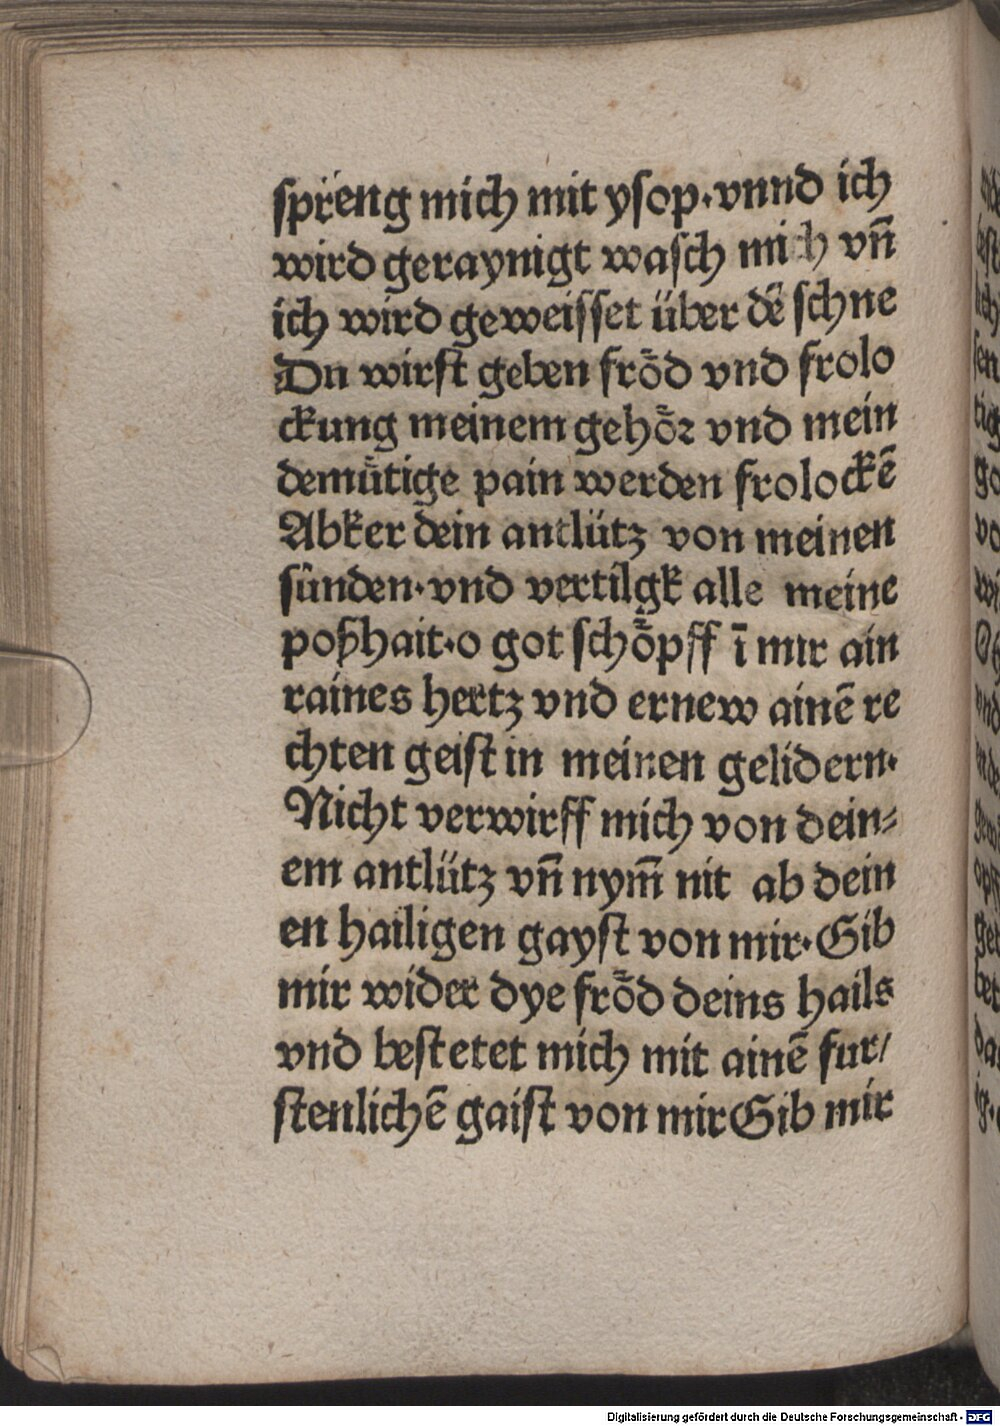 sprëng mich mit ysop·vnnd ich
wird geraynigt wasch mich vn̄
ich wird geweisset über dē schne
Du wirst geben frőd vnd frolo
ckung meinem gehőꝛ vnd mein
deműtige pain werden frolockē
Abker dein antlütz von meinen
sünden·vnd vertilgk alle meine
poßhait·o got schőpff ī mir ain
raines hertz vnd ernew ainē re
chten geist in meinen gelidern·
Nicht verwirff mich von dein⸗
em antlütz vn̄ nym̄ nit ab dein
en hailigen gayst von mir·Gib
mir wider dye frőd deins hails
vnd bestetet mich mit ainē fur/
stenlichē gaist von mir Gib mir
Digitalisierung gefördert durch die Deutsche Forschungsgemeinschaft - DFG